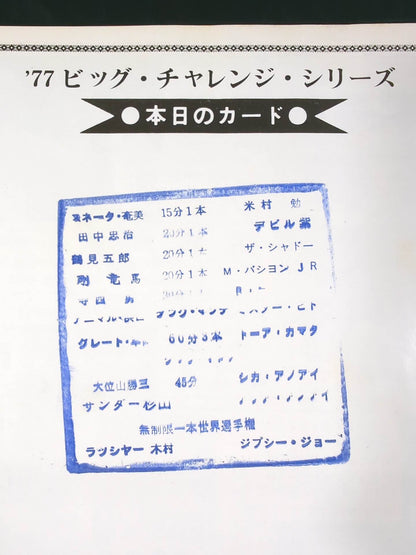 '77 ビッグ・チャレンジ・シリーズ
●本日のカード●
スネータ・奄美 15分1本 米村 勉
田中忠治 20分1本 デビル紫
鶴見五郎 20分1本 ザ・シャドー
剛 竜馬 20分1本 M・バシヨン JR
寺西 勇 20分1本
グレート・草津 60分3本 トーア・カマタ
大位山勝三 45分 シカ・アノアイ
サンダー杉山
無制限一本世界選手権
ラツシヤー 木村 ジプシー・ジョー